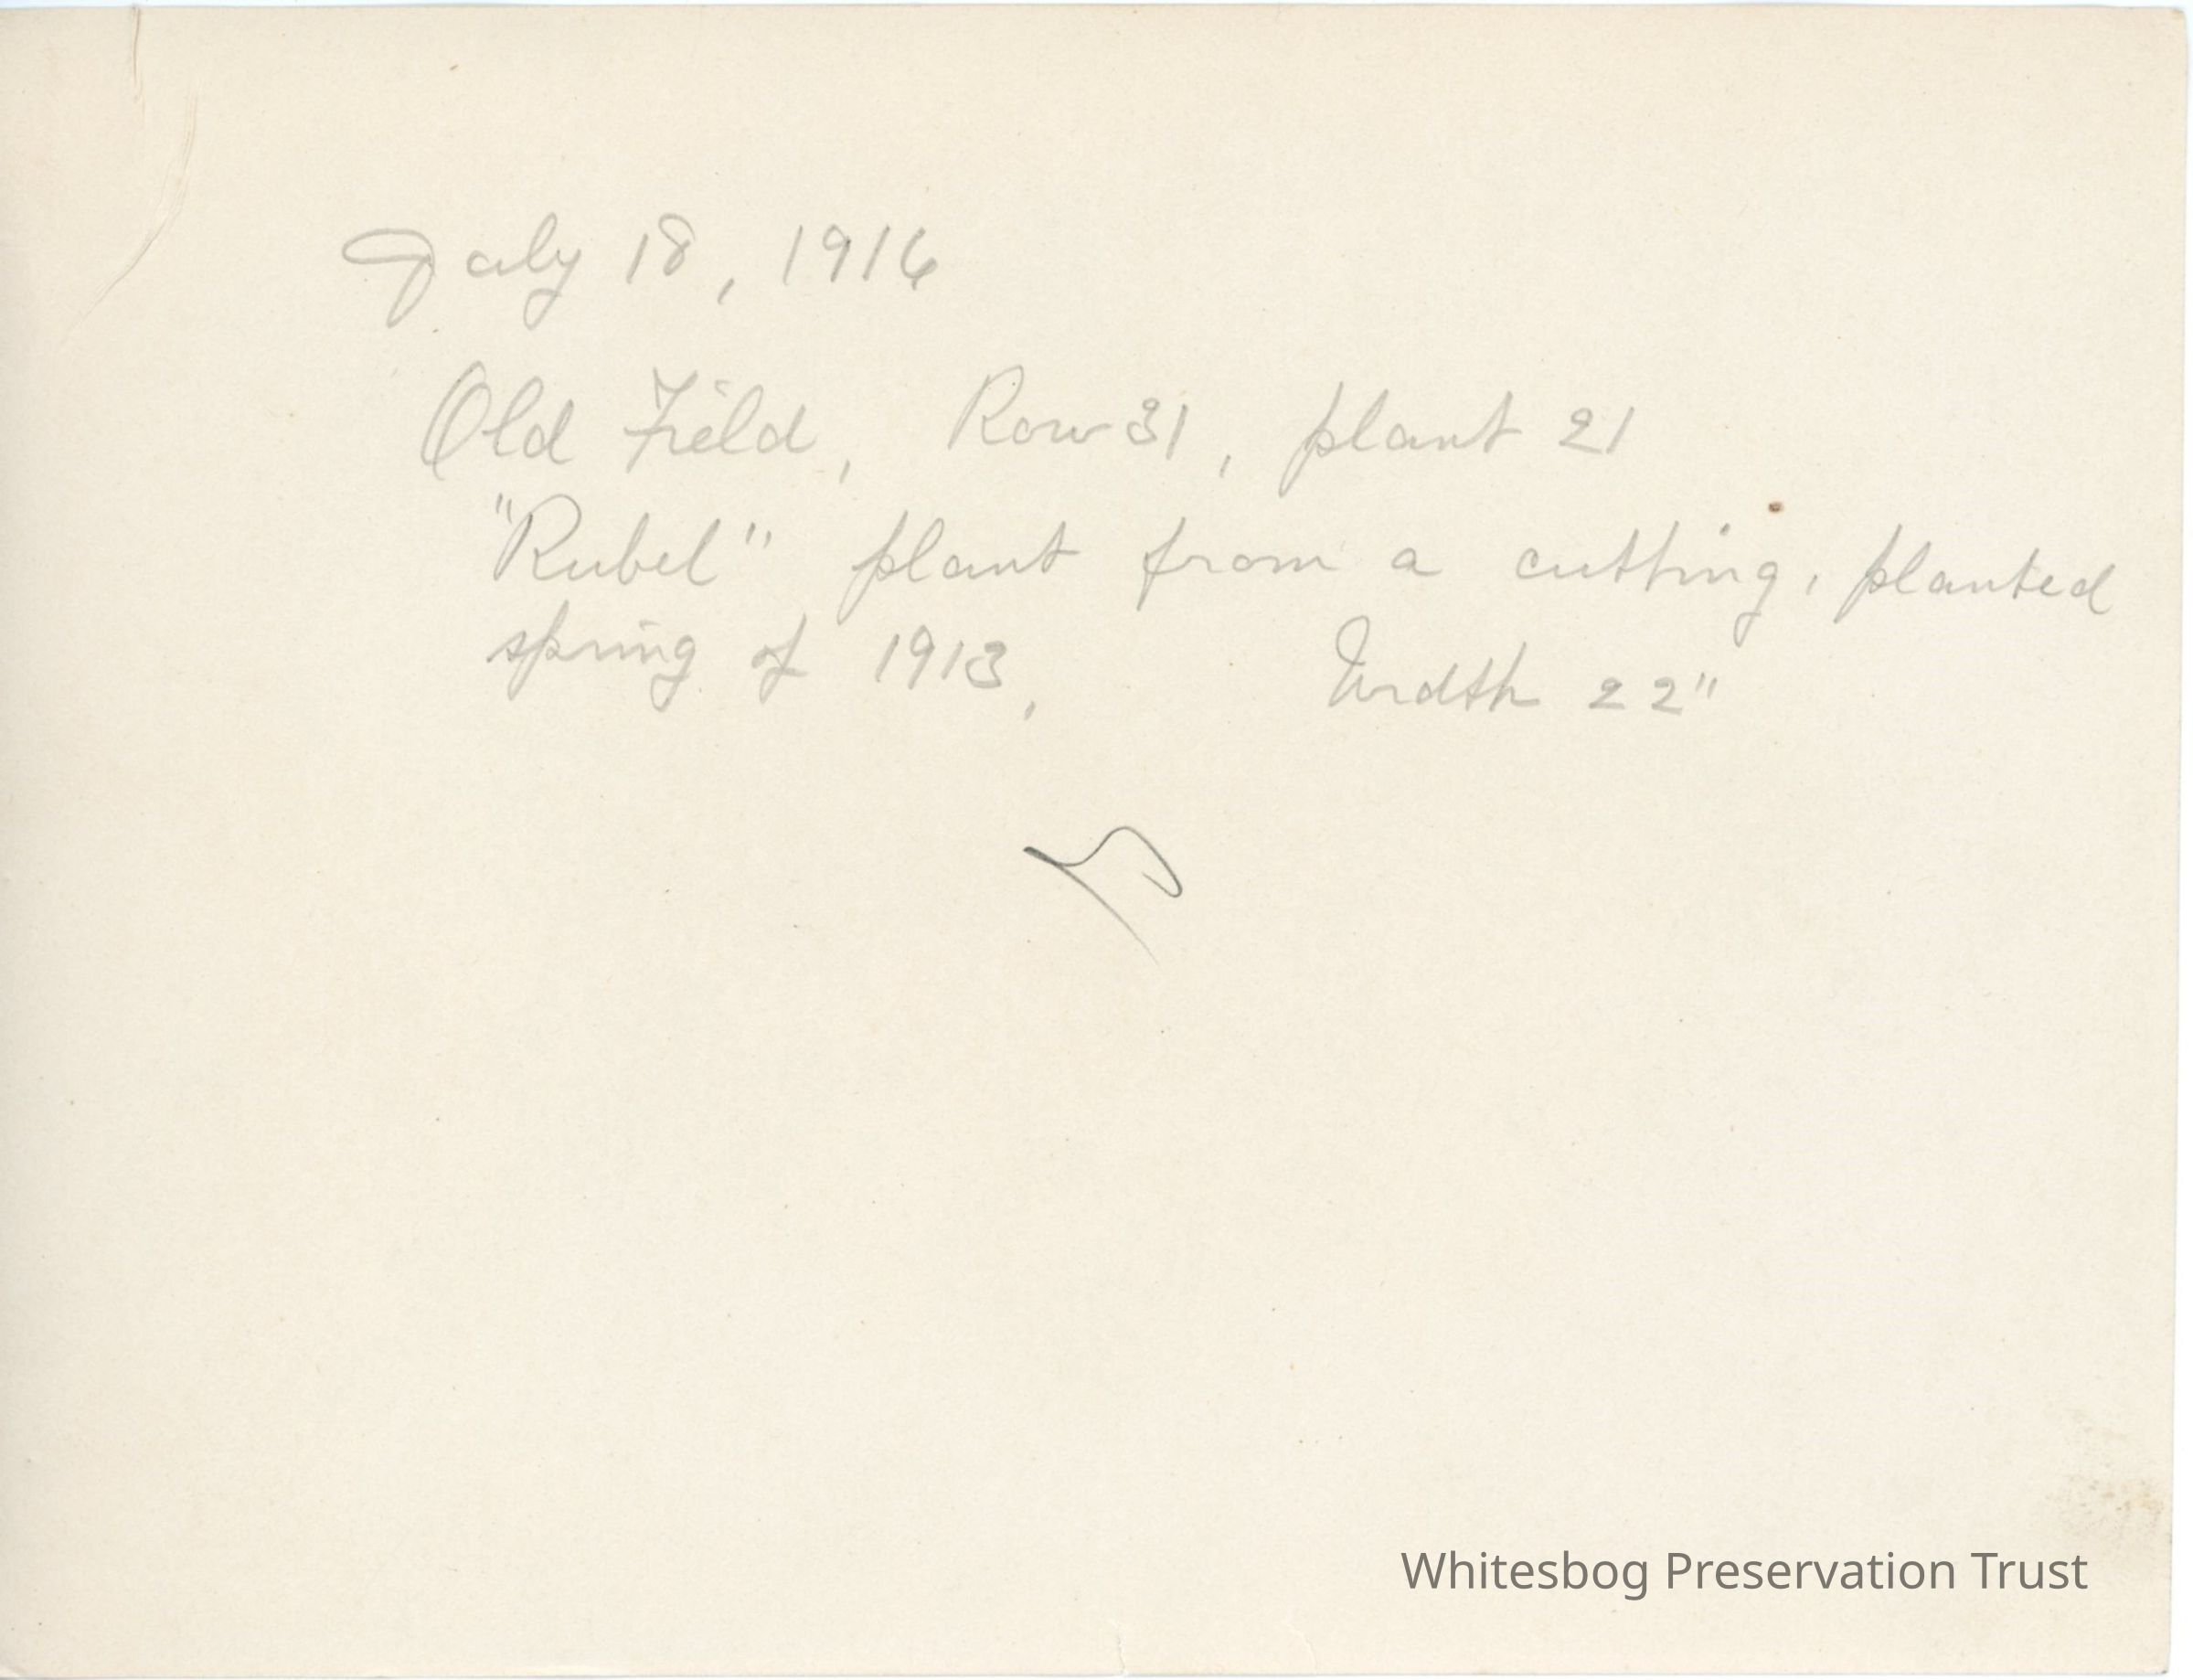 July 18, 1916
Old Field, Row 31, plant 21
"Rubel" plant from a cutting, planted
spring of 1913, Width 22"
Whitesbog Preservation Trust